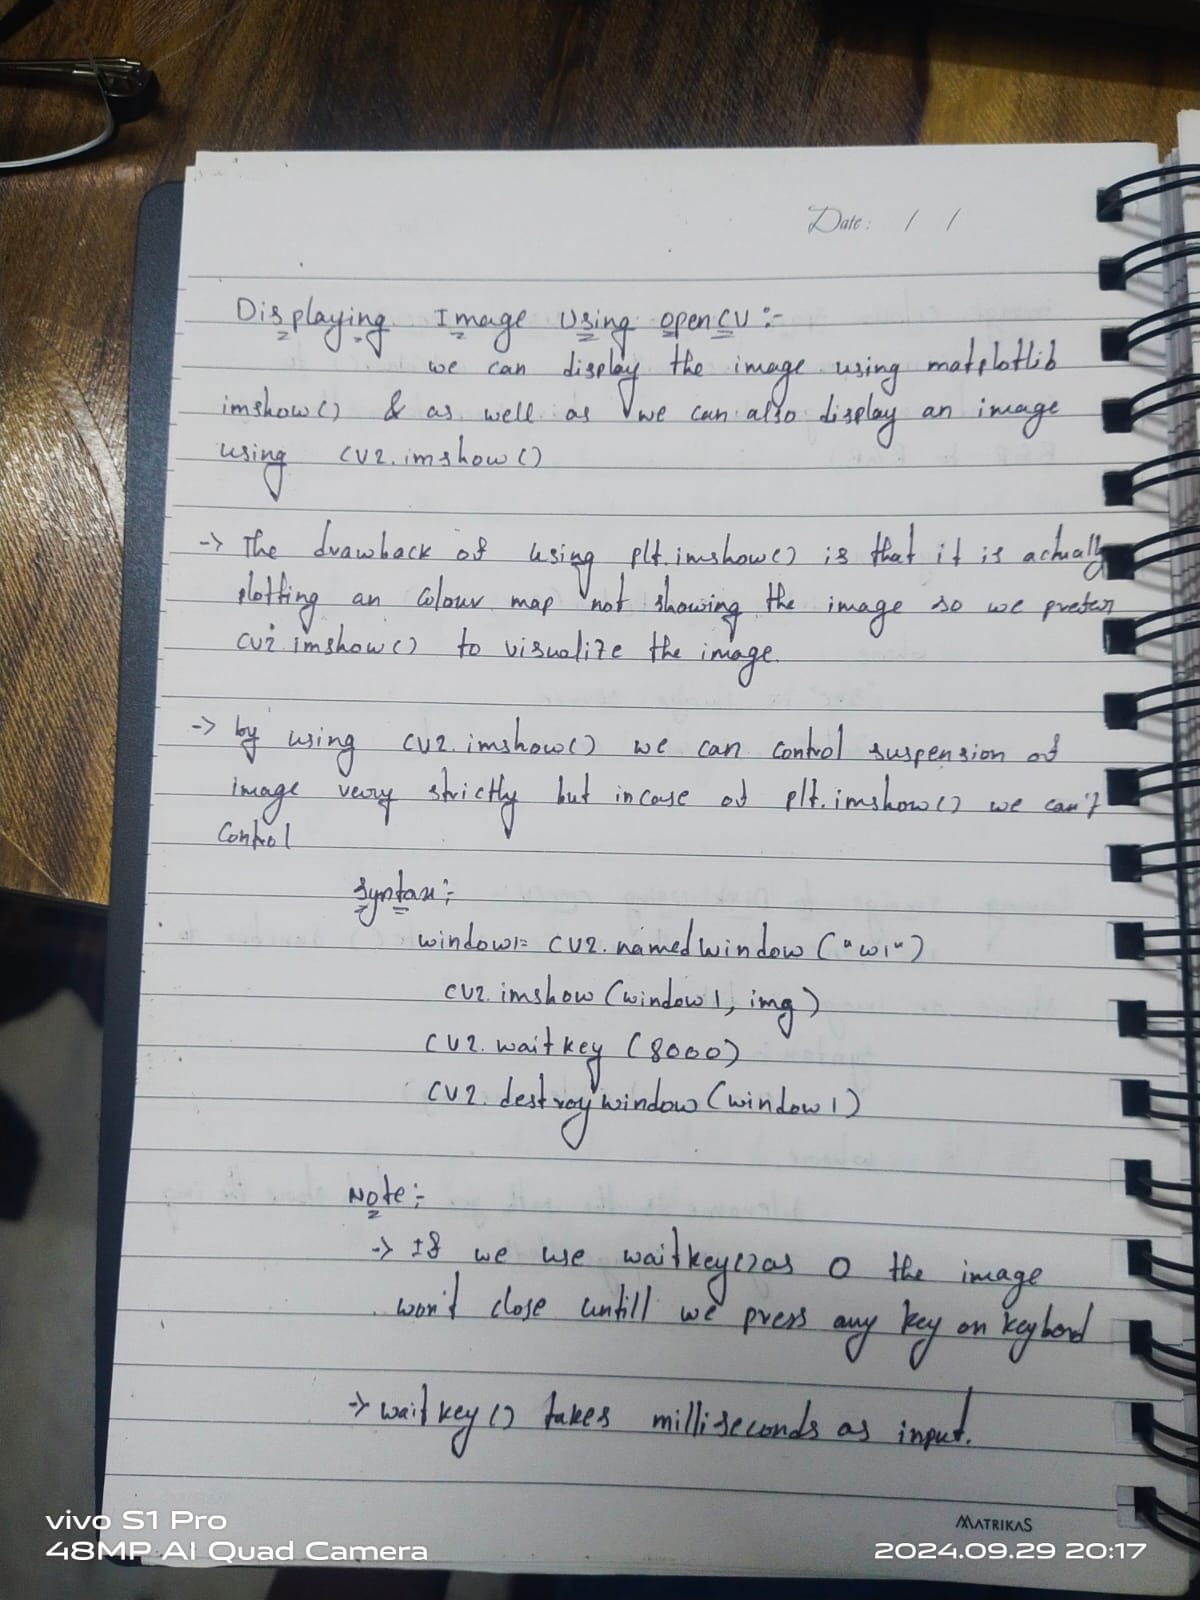 Date: / /
Displaying Image Using OpenCV :-
we can display the image using matplotlib
imshow() & as well as we can also display an image
using cv2.imshow()
-> The drawback of using plt.imshow() is that it is actually
plotting an colour map not showing the image so we prefer
cv2.imshow() to visualize the image.
-> by using cv2.imshow() we can control suspension of
image very strictly but incase of plt.imshow() we can't
control
Syntax :-
window1= cv2.namedWindow ("w1")
cv2.imshow (window1, img)
cv2.waitkey (8000)
cv2.destroywindow (window1)
Note :-
-> If we use waitkey() as 0 the image
won't close untill we press any key on keybord
-> waitkey() takes milliseconds as input.
MATRIKAS
vivo S1 Pro
48MP AI Quad Camera
2024.09.29 20:17